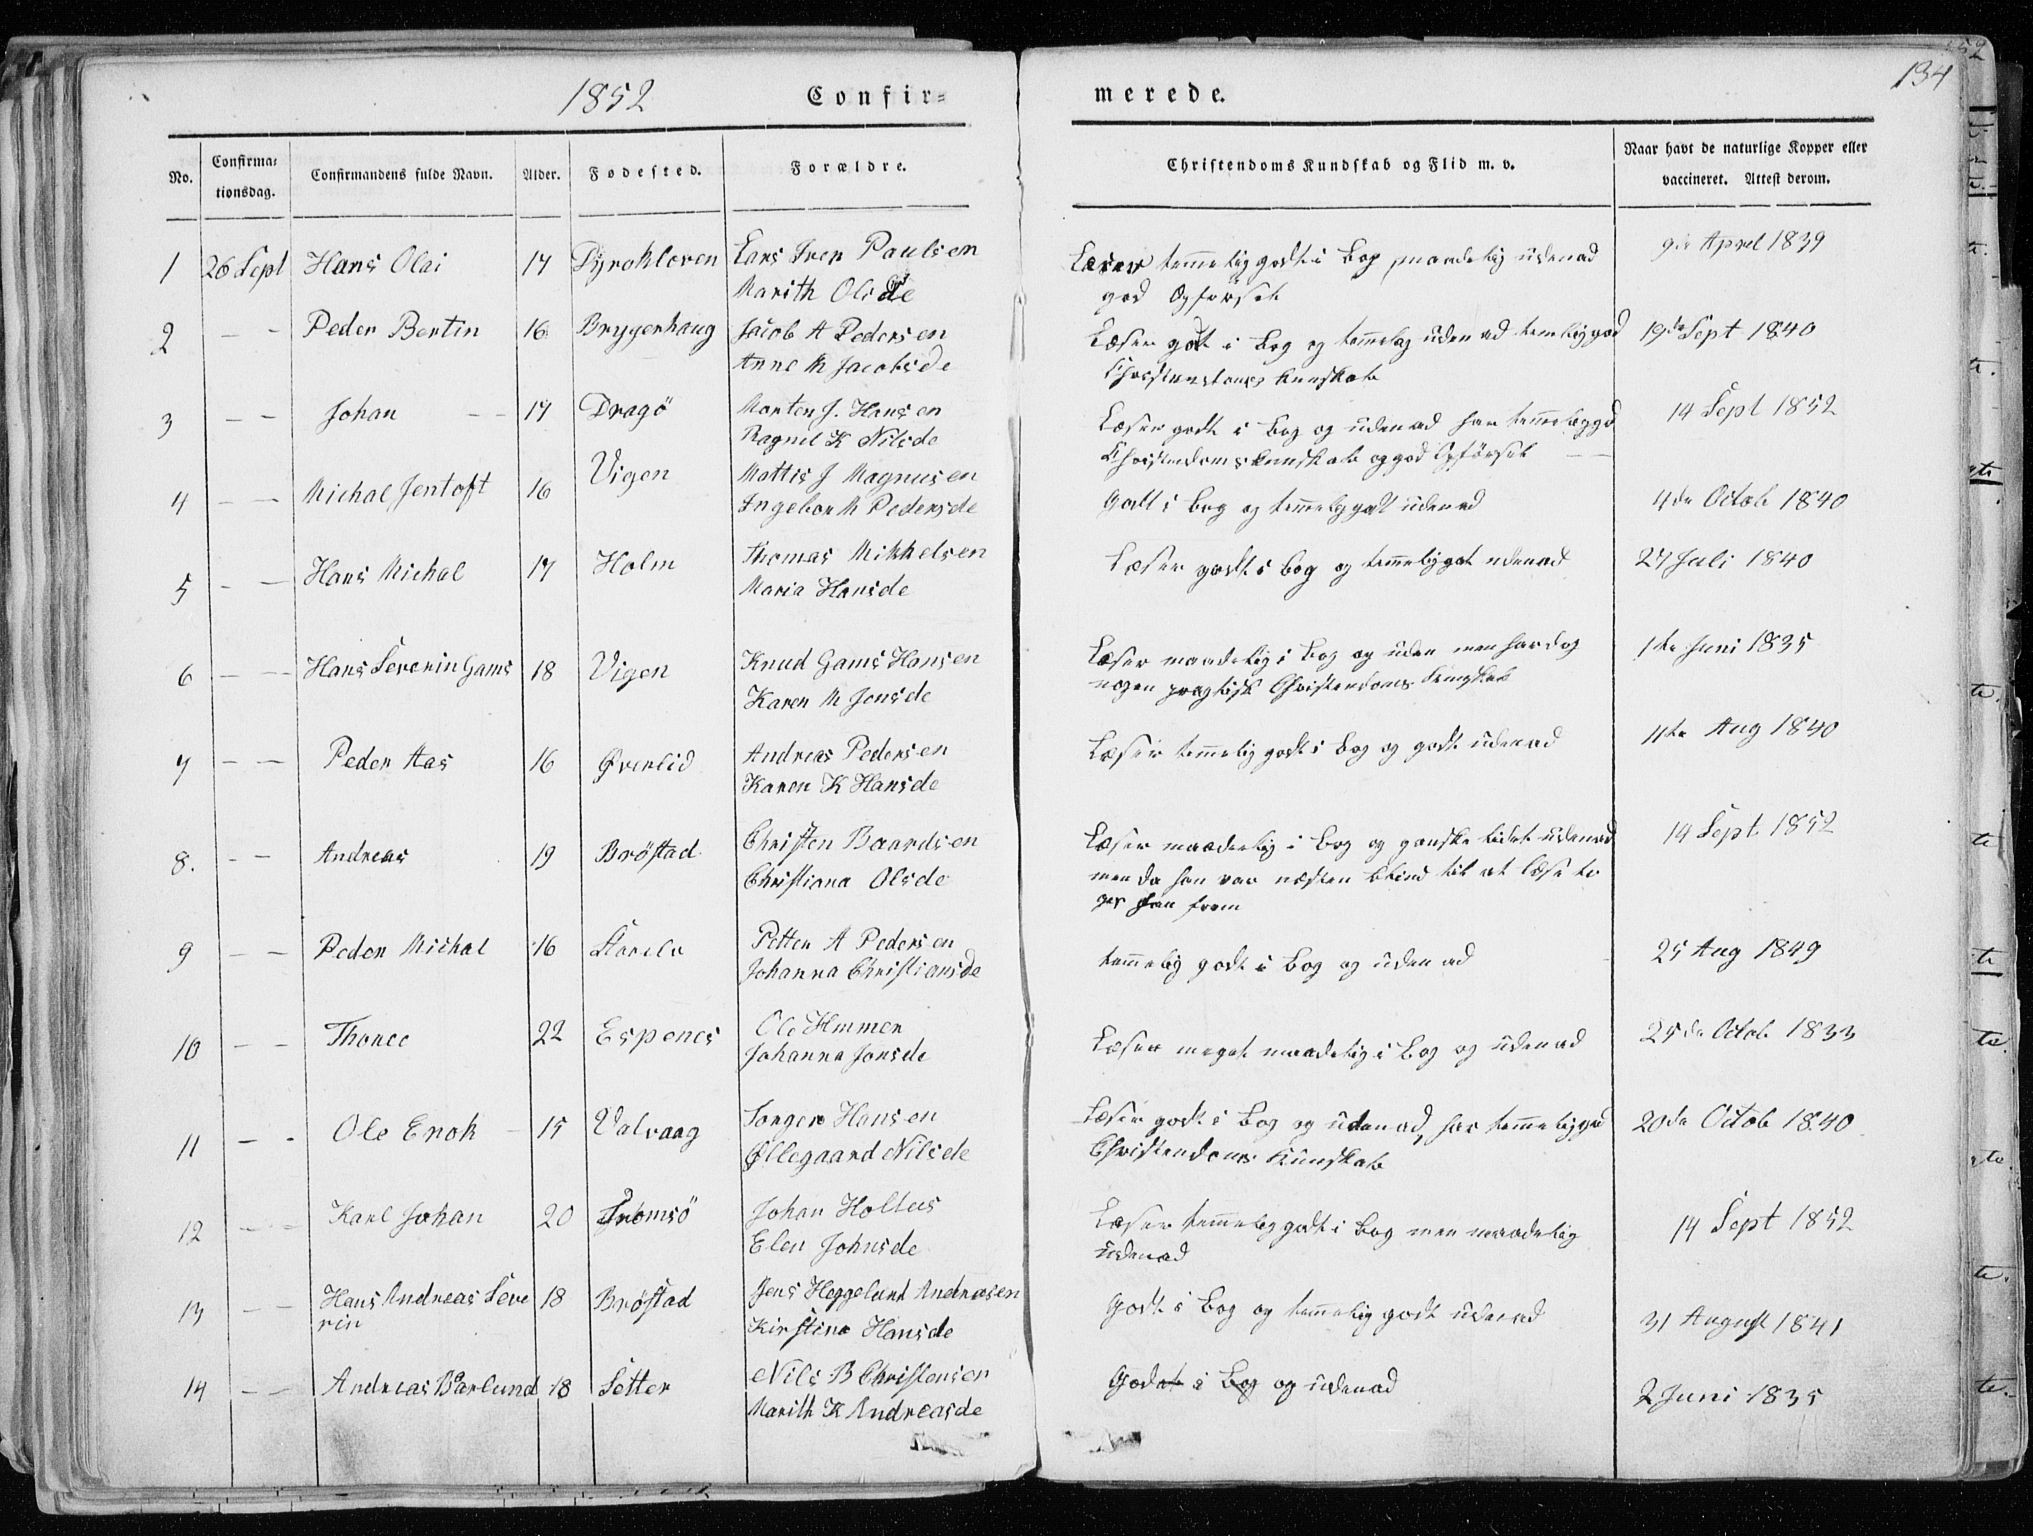 1852 Confir= merede. 134
No. Confirma= tionsdag. Confirmandens fulde Navn. Alder. Fødested. Forældre. Christendoms Kundskab og Flid m. v. Naar havt de naturlige Kopper eller vaccineret. Attest derom.
1 26 Sept Hans Olai 17 Dyrakloven Lars Iver Paulsen Læser temmelig godt i Bog maadelig udenad 9de Aprel 1839
Marith Olsde god Opførsel
2 - - Peder Bertin 16 Bryggerhaug Jacob A Pedersen Læser got i Bog og temmelig uden ad temlig god 19de Sept 1840
Anne M Jacobsde Christendoms kunskab
3 - - Johan - - 17 Dragö Morten J. Hansen Læser godt i Bog og uden ad har temmelig god 14 Sept 1852
Ragnil K Nilsde Christendomskunskab og god Opförsel - -
4 - - Michal Jentoft 16 Vigen Mattis J Magnusen Godt i bog og temmelig godt udenad 4de Octob 1840
Ingebor M Pedersde
5 - - Hans Michal 17 Holm Thomas Mikkelsen Læser godt i bog og temmelig got udenad 27 Juli 1840
Maria Hansde
6 - - Hans Severin Gams 18 Vigen Knud Gams Hansen Læser maadelig i Bog og uden men har dog 1te Juni 1835
Karen M Jonsde nogen practisk Christendoms kunskab
7 - - Peder Aas 16 Øverlid Andreas Pedersen Læser temmelig godt i Bog og godt udenad 11te Aug 1840
Karen K Hansde
8. - - Andreas 19 Bröstad Christen Baardsen Læser maadelig i Bog og ganske lidet udenad 14 Sept 1852
Christiana Olsde men da han var næsten blind til at læse to
ges han frem
9 - - Peder Michal 16 Storelv Petter A Pedersen temmelig godt i Bog og uden ad 25 Aug 1849
Johanna Christiansde
10 - - Thonee 22 Espenes Ole Hmmer Læser meget maadelig i Bog og udenad 25de Octob 1833
Johanna Jonsde
11 - - Ole Enok 15 Valvaag Jorgen Hansen Læser godt i Bog og udenad, har temmelig god 20de Octob 1840
Øllegaard Nilsde Christendoms kunskab
12 - - Karl Johan 20 Tromsö Johan Holtus Læser temmelig godt i Bog men maadelig 14 Sept 1852
Elen Johnsde udenad
13 - - Hans Andreas Seve 18 Bröstad Jens Heggelund Andreasen Godt i Bog og temmelig godt udenad 31 August 1841
rin Kirstina Hansde
14 - - Andreas Barlund 18 Setter Nils B Christensen Godt i Bog og udenad 2 Juni 1835
Marith K Andreasde